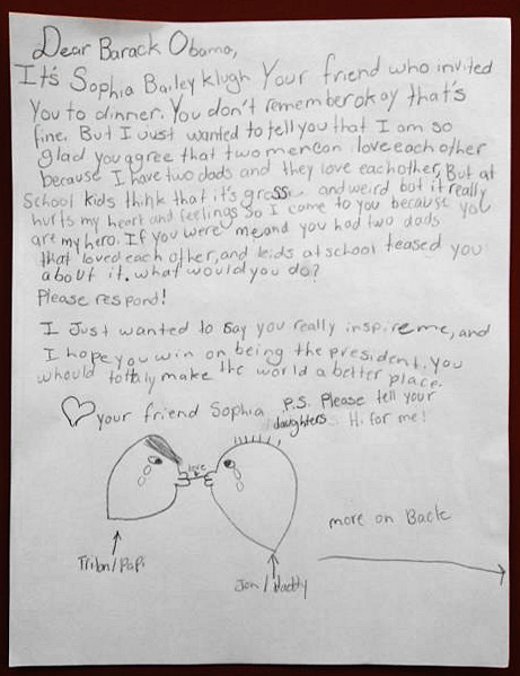 Dear Barack Obama,
It's Sophia Bailey Klugh Your friend who invited
You to dinner. You don't remember okay that's
fine. But I Just wanted to tell you that I am so
glad you agree that two men can love each other
because I have two dads and they love each other, But at
School kids think that it's gross and weird but it really
hurts my heart and feelings So I come to you because you
are my hero. If you were me and you had two dads
that loved each other, and kids at school teased you
about it. what would you do?
Please respond!
I Just wanted to say you really inspire me, and
I hope you win on being the president. You
whould tottaly make the world a better place.
♡ your friend Sophia
P.S. Please tell your
daughters Hi for me!
love
more on Back
/Papi
Jon / daddy